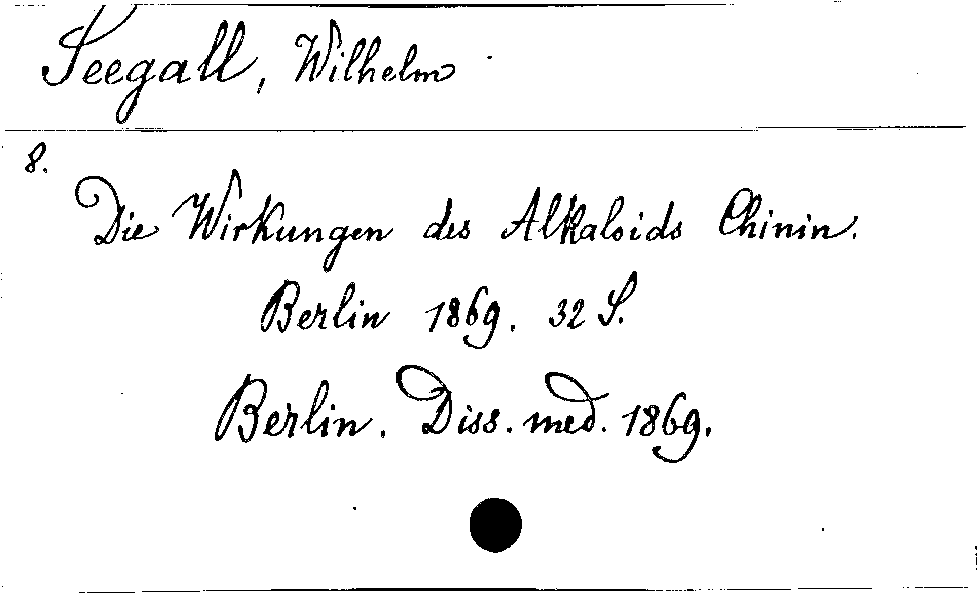 Seegall, Wilhelm
8.
Die Wirkungen des Alkaloids Chinin.
Berlin 1869. 32 S.
Berlin. Diss. med. 1869.